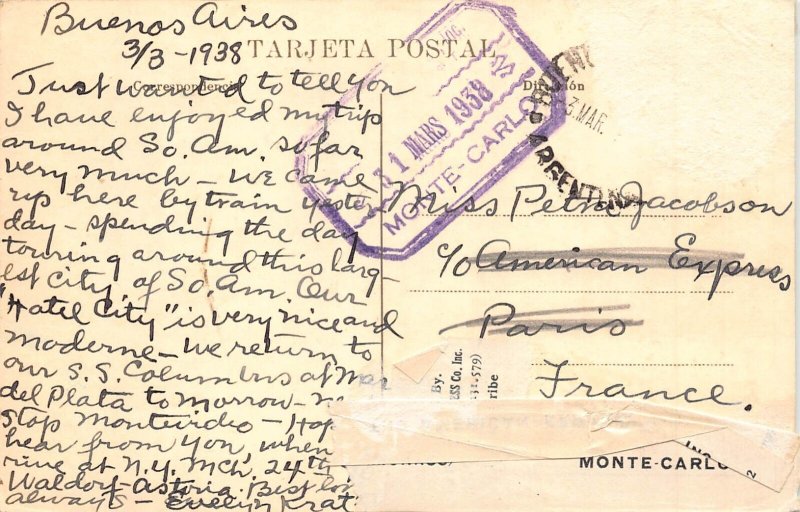 Buenos Aires
3/3-1938
TARJETA POSTAL
Correspondencia
Dirección
Just wanted to tell you
I have enjoyed my trip
around So. Am. so far
very much - we came
up here by train yester-
day - spending the day
touring around this larg-
est city of So. Am. Our
"Hotel City" is very nice and
moderne - we return to
our S.S. Columbus at Mar
del Plata to morrow -
stop Montevideo - Hop
hear from you, when
rive at N.Y. Mch, 24th -
Waldorf-Astoria. Best
always - Evelyn Krat
Inc.
31 MARS 1938
MONTE-CARLO
3 MAR.
ARGENTINA
Miss Petra Jacobson
c/o American Express
Paris
France.
By.
ESS Co., Inc.
579)
ribe
MONTE-CARLO
2